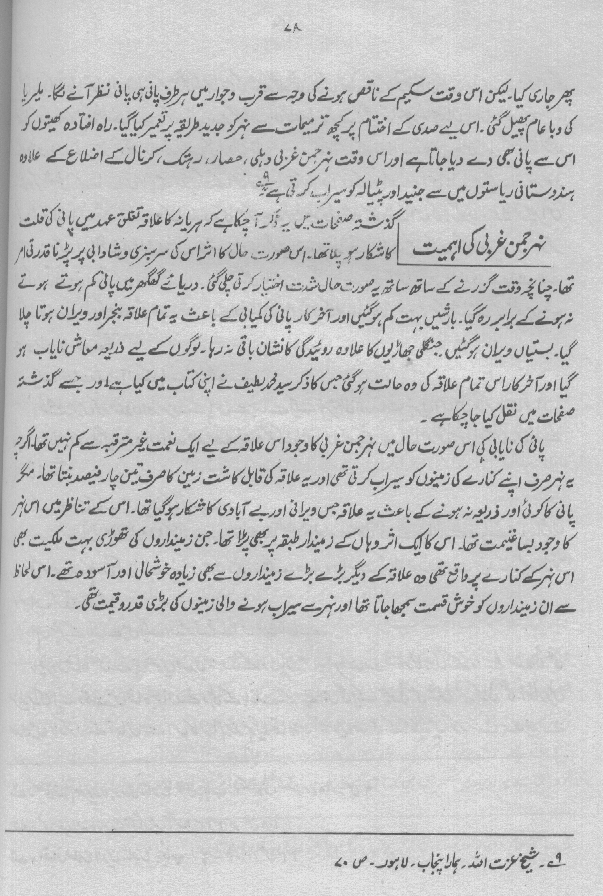 ۷۸
پھر جاری کیا۔ لیکن اس وقت سکیم کے ناقص ہونے کی وجہ سے قرب و جوار میں ہر طرف پانی ہی پانی نظر آنے لگا۔ ملیریا
کی وبا عام پھیل گئی۔ اس لیے صدی کے اختتام پر کچھ ترمیمات سے نہر کو جدید طریقہ پر تعمیر کیا گیا۔ راہ افتادہ کھیتوں کو
اس سے پانی بھی دے دیا جاتا ہے اور اس وقت نہر جمن غربی دہلی، حصار، رہتک، کرنال کے اضلاع کے علاوہ
ہندوستانی ریاستوں میں سے جنید اور پٹیالہ کو سیراب کرتی ہے۹
نہر جمن غربی کی اہمیت
گذشتہ صفحات میں یہ ذکر آ چکا ہے کہ ہریانہ کا علاقہ تغلق عہد میں پانی کی قلت
کا شکار ہو چلا تھا۔ اس صورت حال کا اثر اس کی سرسبزی و شادابی پر پڑنا قدرتی امر
تھا۔ چنانچہ وقت گزرنے کے ساتھ ساتھ یہ صورت حال شدت اختیار کرتی چلی گئی۔ دریائے گھگھر میں پانی کم ہوتے ہوتے
نہ ہونے کے برابر رہ گیا۔ بارشیں بہت کم ہو گئیں اور آخر کار پانی کی کمیابی کے باعث یہ تمام علاقہ بنجر اور ویران ہوتا چلا
گیا۔ بستیاں ویران ہو گئیں، جنگلی جھاڑیوں کا علاوہ روئیدگی کا نشان باقی نہ رہا۔ لوگوں کے لیے ذریعہ معاش نایاب ہو
گیا اور آخر کار اس تمام علاقہ کی وہ حالت ہو گئی جس کا ذکر سید محمد لطیف نے اپنی کتاب میں کیا ہے اور جسے گذشتہ
صفحات میں نقل کیا جا چکا ہے۔
پانی کی نایابی کی اس صورت حال میں نہر جمن غربی کا وجود اس علاقہ کے لیے ایک نعمت غیر مترقبہ سے کم نہیں تھا، اگرچہ
یہ نہر صرف اپنے کنارے کی زمینوں کو سیراب کرتی تھی اور یہ علاقہ کی قابل کاشت زمین کا صرف تین چار فیصد بنتا تھا۔ مگر
پانی کا کوئی اور ذریعہ نہ ہونے کے باعث یہ علاقہ جس ویرانی اور بے آبادی کا شکار ہو گیا تھا۔ اس کے تناظر میں اس نہر
کا وجود بسا غنیمت تھا۔ اس کا ایک اثر وہاں کے زمیندار طبقہ پر بھی پڑا تھا۔ جن زمینداروں کی تھوڑی بہت ملکیت بھی
اس نہر کے کنارے پر واقع تھی وہ علاقہ کے دیگر بڑے بڑے زمینداروں سے بھی زیادہ خوشحالی اور آسودہ تھے۔ اس لحاظ
سے ان زمینداروں کو خوش قسمت سمجھا جاتا تھا اور نہر سے سیراب ہونے والی زمینوں کی بڑی قدر و قیمت تھی۔
۹۔ شیخ عزت اللہ۔ ہمارا پنجاب۔ لاہور۔ ص ۷۰